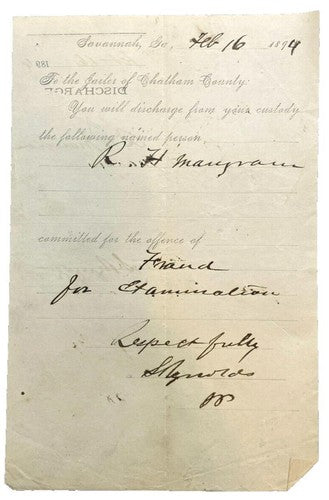 Savannah, Ga, Feb 16 1894
189
To the Jailer of Chatham County:
DISCHARGE
You will discharge from your custody
the following named person,
R. H Mangram
committed for the offence of
Fraud
for Examination
Respectfully